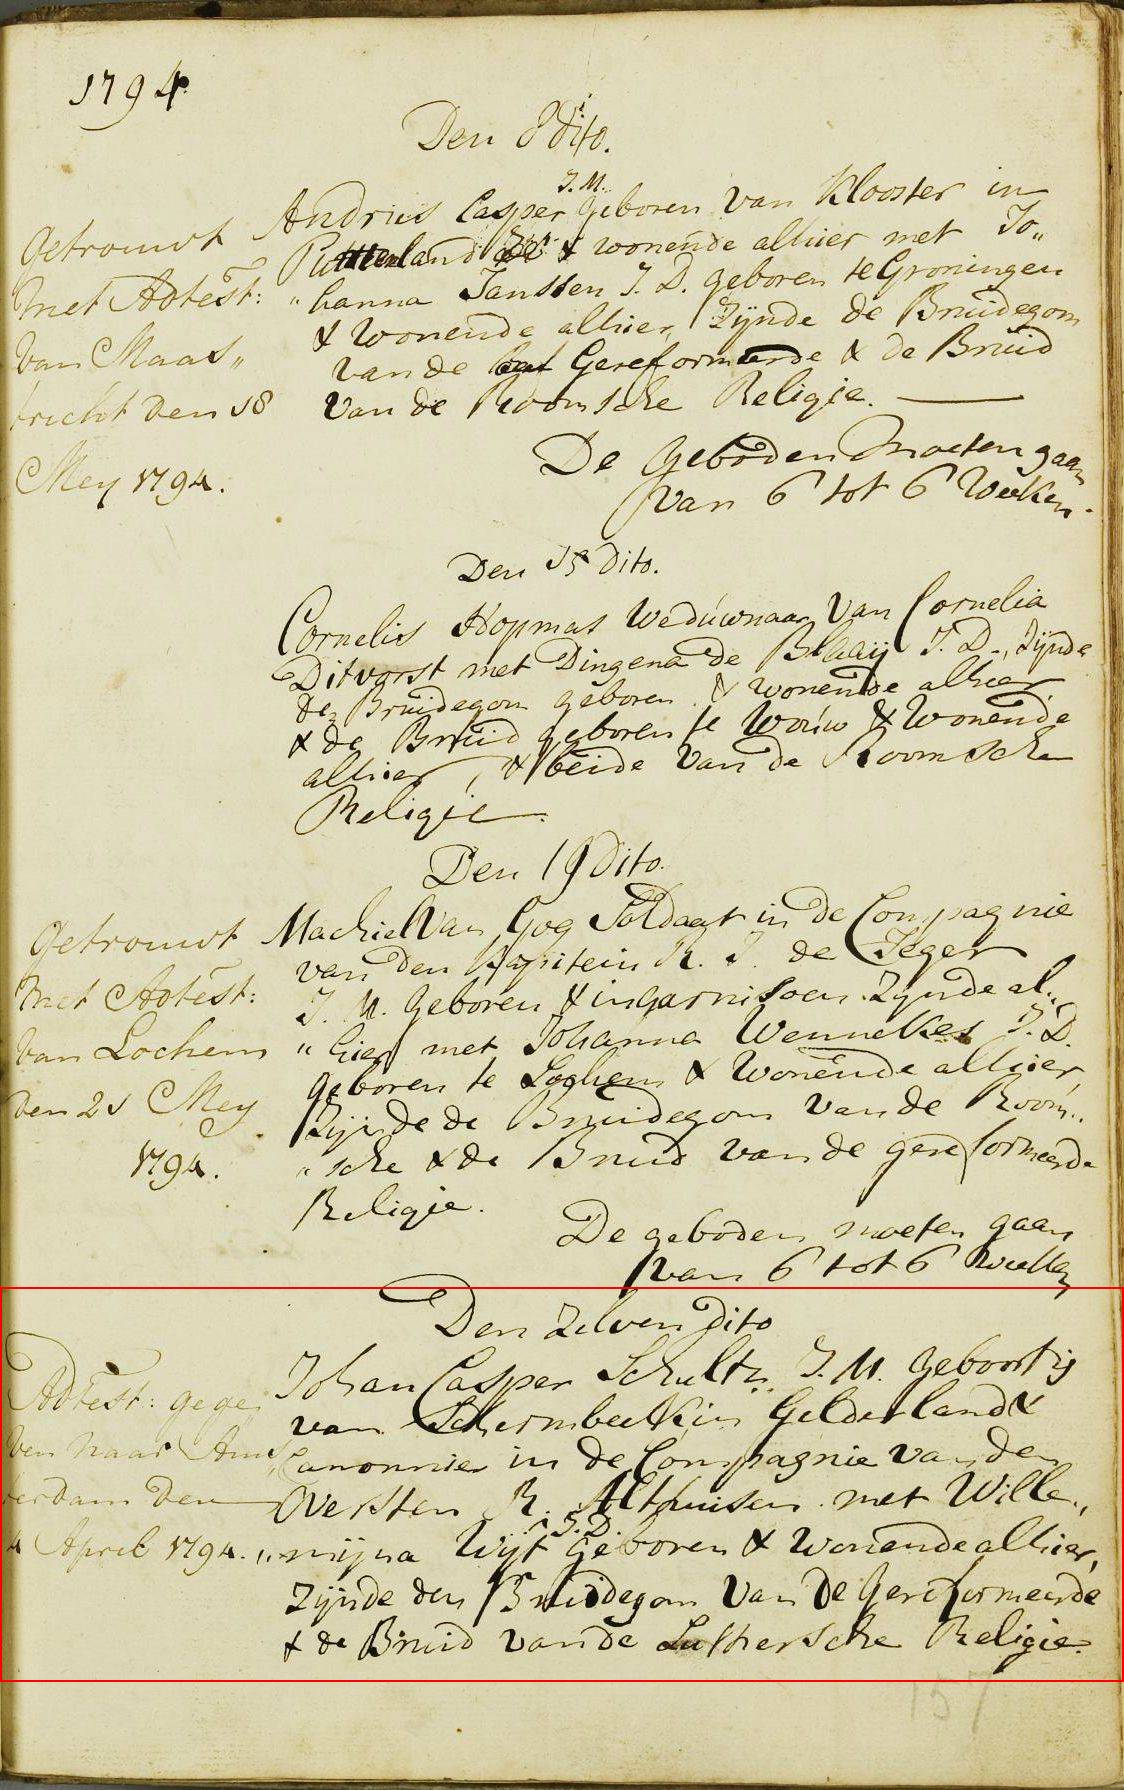 1794.
Den 8 dito.
J. M.
Andries Casper geboren van Klooster in
Putterland & wonende alhier met Jo„
„hanna Janssen J. D. geboren te Groningen
& wonende alhier, Zijnde de Bruidegom
van de Gereformeerde & de Bruid
van de Roomsche Religie.
Getrouwt
met Adtest:
van Maas„
tricht den 18
Mey 1794.
De geboden moeten gaan
van 6 tot 6 Weeken.
Den 15 dito.
Cornelis Hopmas Weduwnaar van Cornelia
Ditvorst met Dingena de Blaaij J. D., Zijnde
de Bruidegom geboren & wonende alhier
& de Bruid geboren te Wouw & Wonende
alhier, & beide van de Roomsche
Religie.
Den 19 dito.
Machiel Van Gog Soldaat in de Compagnie
van den Kapitein R. J. de Jeger
J. M. Geboren & in garnisoen Zynde al„
„hier met Johanna Wennekes J. D.
geboren te Loghem & Wonende alhier,
Zijnde de Bruidegom van de Room„
„sche & de Bruid van de gereformeerde
Religie.
Getrouwt
met Adtest:
van Lochem
den 21 Mey
1794.
De geboden moeten gaan
van 6 tot 6 weeken
Den Zelven dito
Johan Casper Schultz J. M. geboortig
van Schermbeek in Gelderland &
Canonnier in de Compagnie van den
Oversten R. Althuisen met Wille„
J. D.
„mijna Wijt Geboren & Wonende alhier,
Zijnde den Bruidegom van de Gereformeerde
& de Bruid van de Luthersche Religie.
Adtest: gege
ven naar Ams
terdam den
4 April 1794.
157